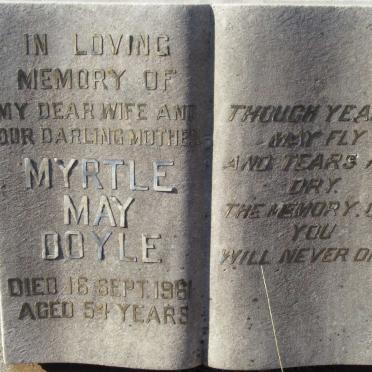 IN LOVING
MEMORY OF
MY DEAR WIFE AND
OUR DARLING MOTHER
MYRTLE
MAY
DOYLE
DIED 16 SEPT. 1961
AGED 54 YEARS
THOUGH YEA
MAY FLY
AND TEARS
DRY.
THE MEMORY
YOU
WILL NEVER